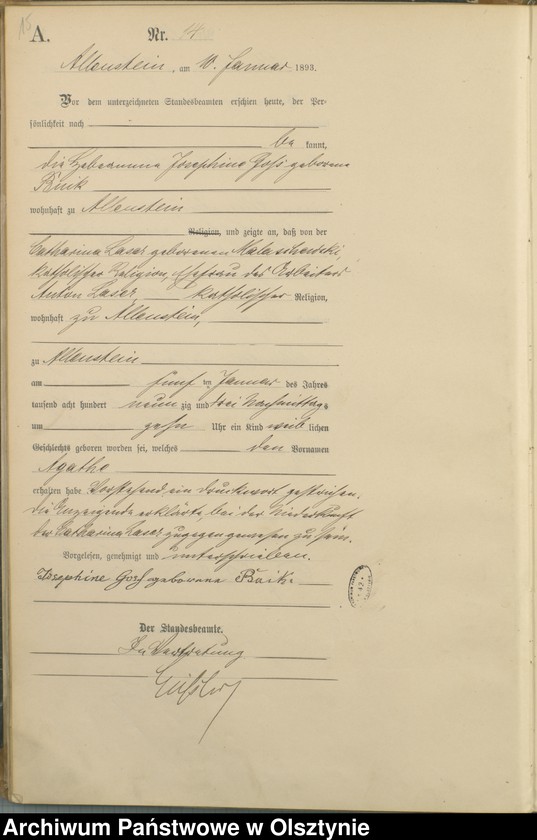 15
A.
Nr. 14
Allenstein, am 10. Januar 1893.
Vor dem unterzeichneten Standesbeamten erschien heute, der Per-
sönlichkeit nach
be kannt,
die Hebeamme Josephine Goss geborene
wohnhaft zu Allenstein
Religion, und zeigte an, daß von der
Catharina Laser geborenen
katholischer Religion, Ehefrau des Arbeiters
Anton Laser, katholischer Religion,
wohnhaft zu Allenstein,
zu Allenstein
am fünf ten Januar des Jahres
tausend acht hundert neun zig und drei Nachmittags
um zehn Uhr ein Kind weib lichen
Geschlechts geboren worden sei, welches den Vornamen
Agathe
erhalten habe. Vorstehend ein Druckwort gestrichen.
Die Anzeigende erklärte, bei der Niederkunft
der Catharina Laser zugegen gewesen zu sein.
Vorgelesen, genehmigt und unterschrieben.
Josephine Goss geborene
Der Standesbeamte.
In Vertretung
Archiwum Państwowe w Olsztynie